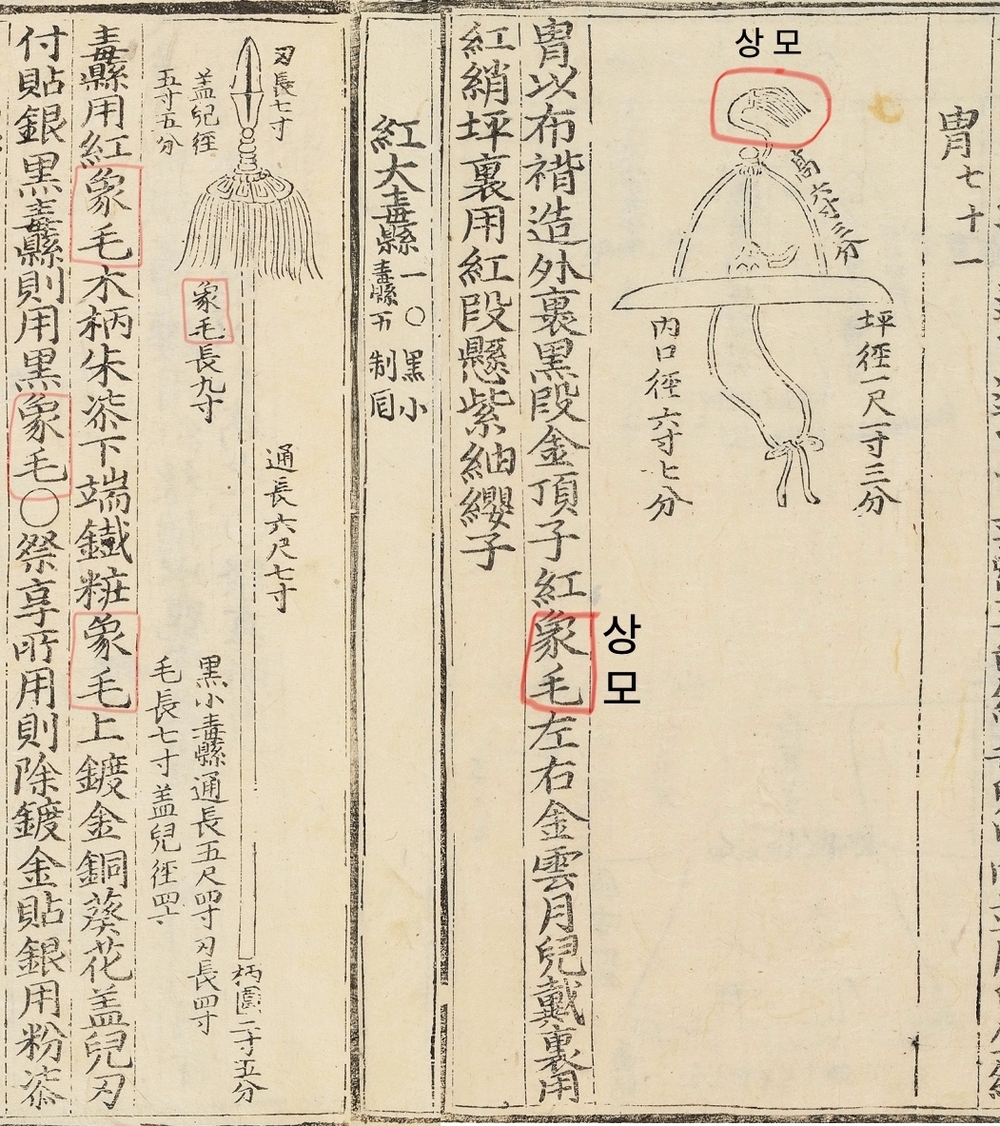 상모
冑七十一
高六寸三分
坪徑一尺一寸三分
內口徑六寸七分
冑以布褙造外裏黑段金頂子紅象毛左右金雲月兒戴裏用
상모
紅綃坪裏用紅段懸紫紬纓子
紅大纛一〇黑小
纛所制同
刃長七寸
盖兒徑
五寸五分
象毛長九寸
通長六尺七寸
柄圓二寸五分
黑小纛通長五尺四寸刃長四寸
毛長七寸盖兒徑四寸
用紅象毛木柄朱漆下端鐵粧象毛上鍍金銅葵花盖兒刃
付貼銀黑纛則用黑象毛〇祭享所用則除鍍金貼銀用粉漆